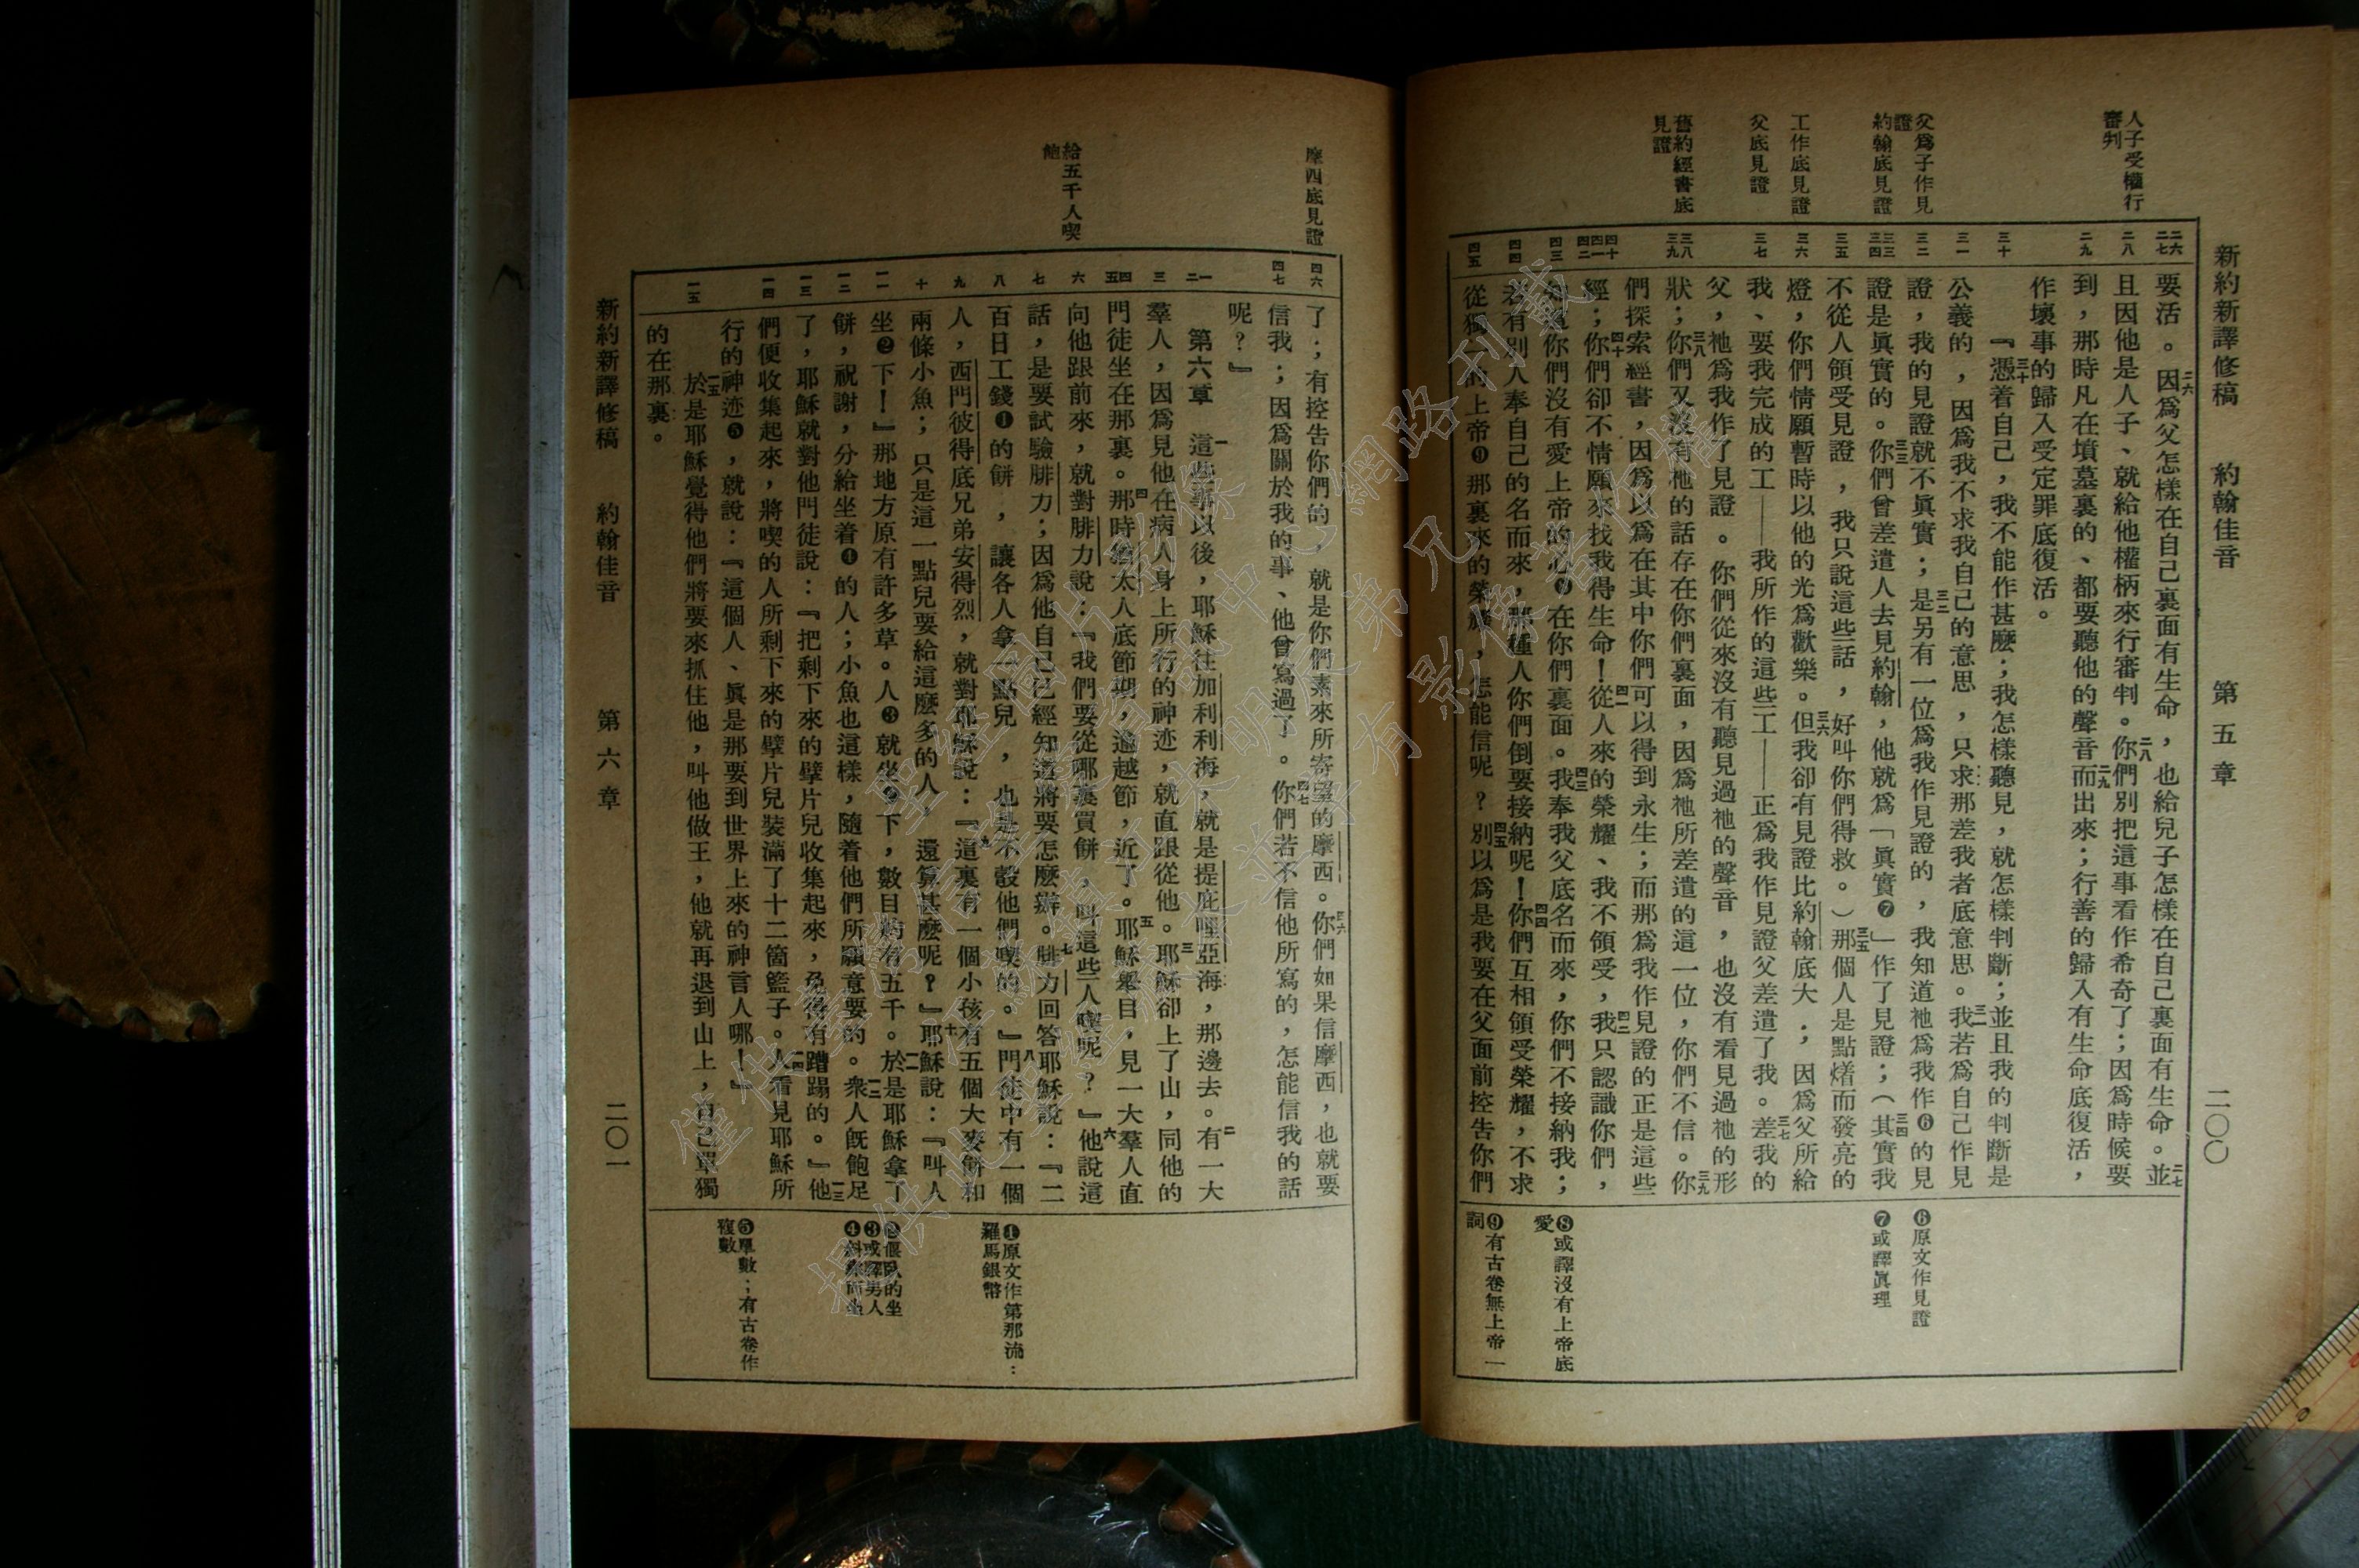 新約新譯修稿　約翰佳音　第五章　二〇〇
人子受權行
審判
父爲子作見
證
約翰底見證
工作底見證
父底見證
舊約經書底
見證
要活。二六因爲父怎樣在自己裏面有生命，也給兒子怎樣在自己裏面有生命。二七並
且因他是人子、就給他權柄來行審判。二八你們別把這事看作希奇了；因爲時候要
到，那時凡在墳墓裏的、都要聽他的聲音二九而出來；行善的歸入有生命底復活，
作壞事的歸入受定罪底復活。
『三十憑着自己，我不能作甚麼；我怎樣聽見，就怎樣判斷；並且我的判斷是
公義的，因爲我不求我自己的意思，只求那差我者底意思。三一我若爲自己作見
證，我的見證就不眞實；三二是另有一位爲我作見證的，我知道祂爲我作❻的見
證是眞實的。三三你們曾差遣人去見約翰，他就爲「眞實❼」作了見證；（三四其實我
不從人領受見證，我只說這些話，好叫你們得救。）三五那個人是點㸃而發亮的
燈，你們情願暫時以他的光爲歡樂。三六但我卻有見證比約翰底大；因爲父所給
我、要我完成的工——我所作的這些工——正爲我作見證父差遣了我。三七差我的
父，祂爲我作了見證。你們從來沒有聽見過祂的聲音，也沒有看見過祂的形
狀；三八你們又沒有祂的話存在你們裏面，因爲祂所差遣的這一位，你們不信。三九你
們探索經書，因爲以爲在其中你們可以得到永生；而那爲我作見證的正是這些
經；四十你們卻不情願來找我得生命！四一從人來的榮耀、我不領受，四二我只認識你們，
你們沒有愛上帝的心❽在你們裏面。四三我奉我父底名而來，你們不接納我；
若有別人奉自己的名而來，那種人你們倒要接納呢！四四你們互相領受榮耀，不求
從獨一的上帝❾那裏來的榮耀，怎能信呢？四五別以爲是我要在父面前控告你們
❻原文作見證
❼或譯眞理
❽或譯沒有上帝底
愛
❾有古卷無上帝一
詞
摩西底見證
給五千人喫
飽
了；有控告你們的，就是你們素來所寄望的摩西。四六你們如果信摩西，也就要
信我；因爲關於我的事、他曾寫過了。四七你們若不信他所寫的，怎能信我的話
呢？』
第六章　一這些事以後，耶穌往加利利海，就是提庇哩亞海，那邊去。二有一大
羣人，因爲見他在病人身上所行的神迹，就直跟從他。三耶穌卻上了山，同他的
門徒坐在那裏。四那時猶太人底節期，逾越節，近了。五耶穌舉目，見一大羣人直
向他跟前來，就對腓力說：『我們要從哪裏買餅，叫這些人喫呢？』六他說這
話，是要試驗腓力；因爲他自己已經知道將要怎麼辦。七腓力回答耶穌說：『二
百日工錢❶的餅，讓各人拿一點兒，也是不彀他們喫的。』八門徒中有一個
人，西門彼得底兄弟安得烈，就對耶穌說：『九這裏有一個小孩有五個大麥餅和
兩條小魚；只是這一點兒要給這麼多的人，還算甚麼呢？』十耶穌說：『叫人
坐❷下！』那地方原有許多草。人❸就坐❷下，數目約有五千。一一於是耶穌拿了
餅，祝謝，分給坐着❹的人；小魚也這樣，隨着他們所願意要的。一二衆人旣飽足
了，耶穌就對他門徒說：『把剩下來的擘片兒收集起來，免得有蹧蹋的。』一三他
們便收集起來，將喫的人所剩下來的擘片兒裝滿了十二箇籃子。一四人看見耶穌所
行的神迹❺，就說：『這個人、眞是那要到世界上來的神言人哪！』
一五於是耶穌覺得他們將要來抓住他，叫他做王，他就再退到山上，自己單獨
的在那裏。
❶原文作第那流：
羅馬銀幣
❷偃臥的坐
❸或譯男人
❹斜䠷而坐
❺單數；有古卷作
複數
新約新譯修稿　約翰佳音　第六章　二〇一